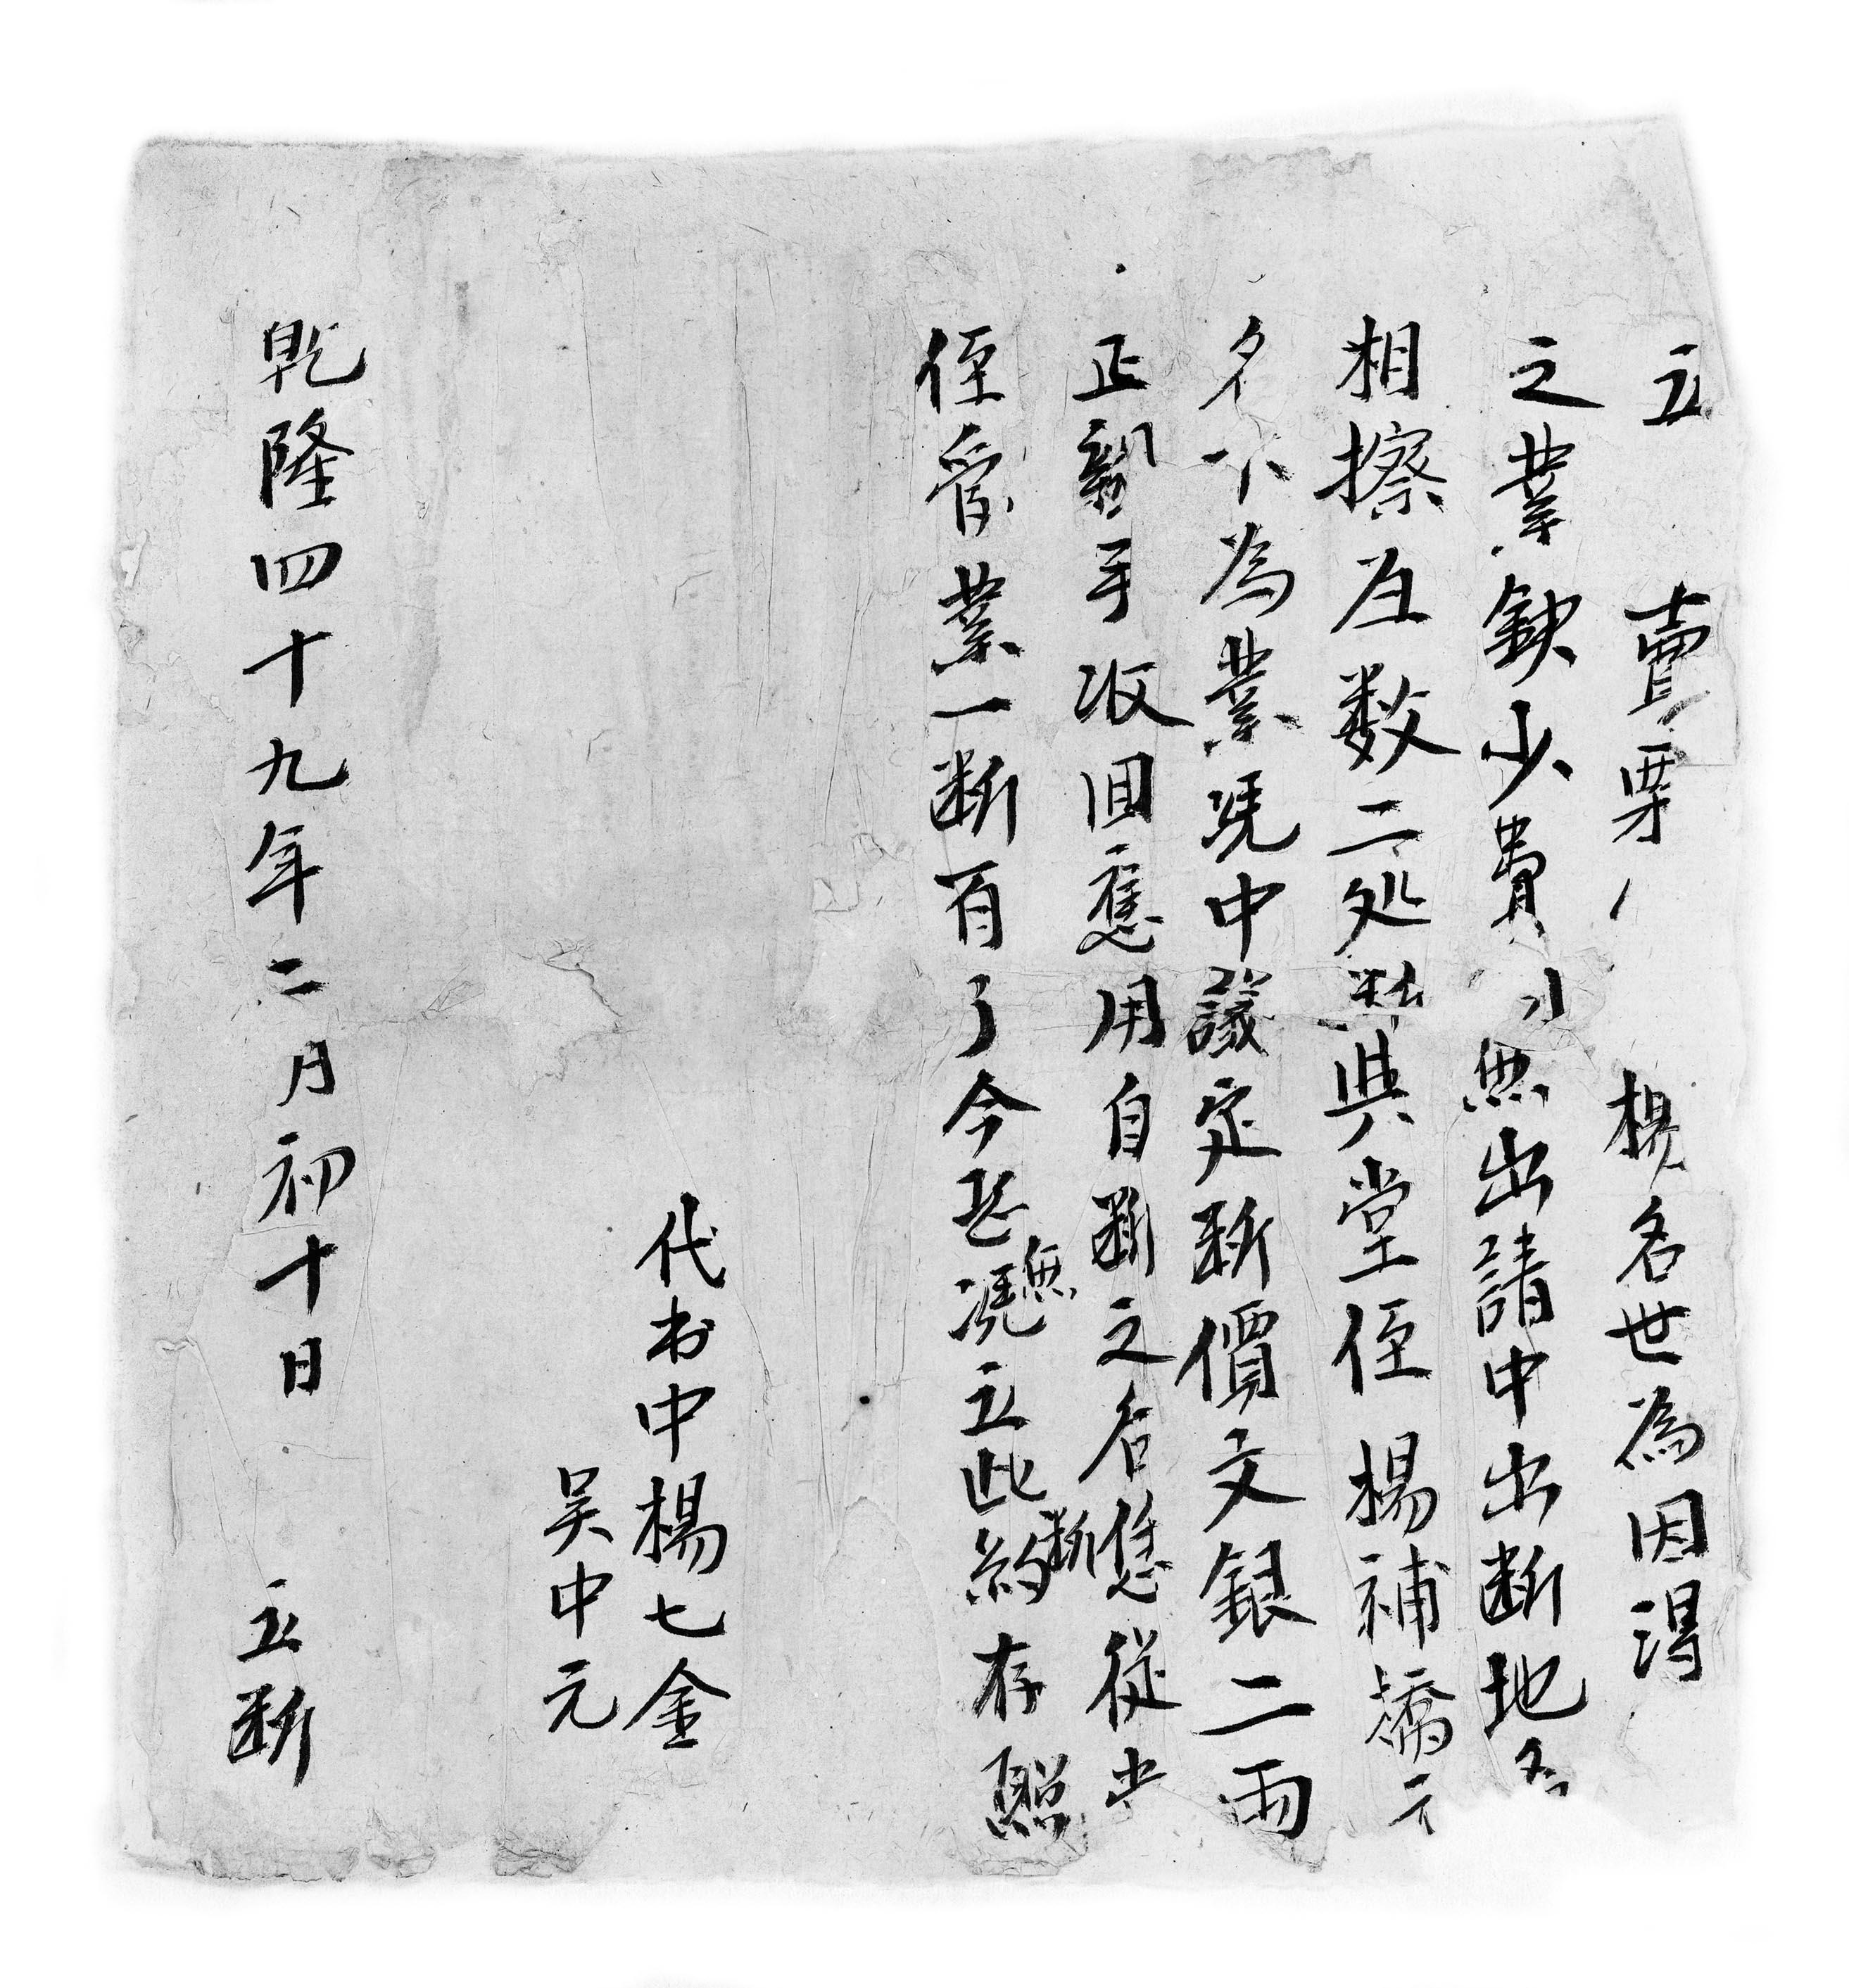 立 賣栗 楊名世為因得
之業缺少費用無出請中出断地名
相擦瓦数二処 與堂侄楊補橋
名下為業凴中議定断價文銀二両
正親手収回應用自断之后恁從出
侄管業一断百了今恐無凴立此断約存照
代书中楊七金
吴中元
乾隆四十九年二月初十日 立断